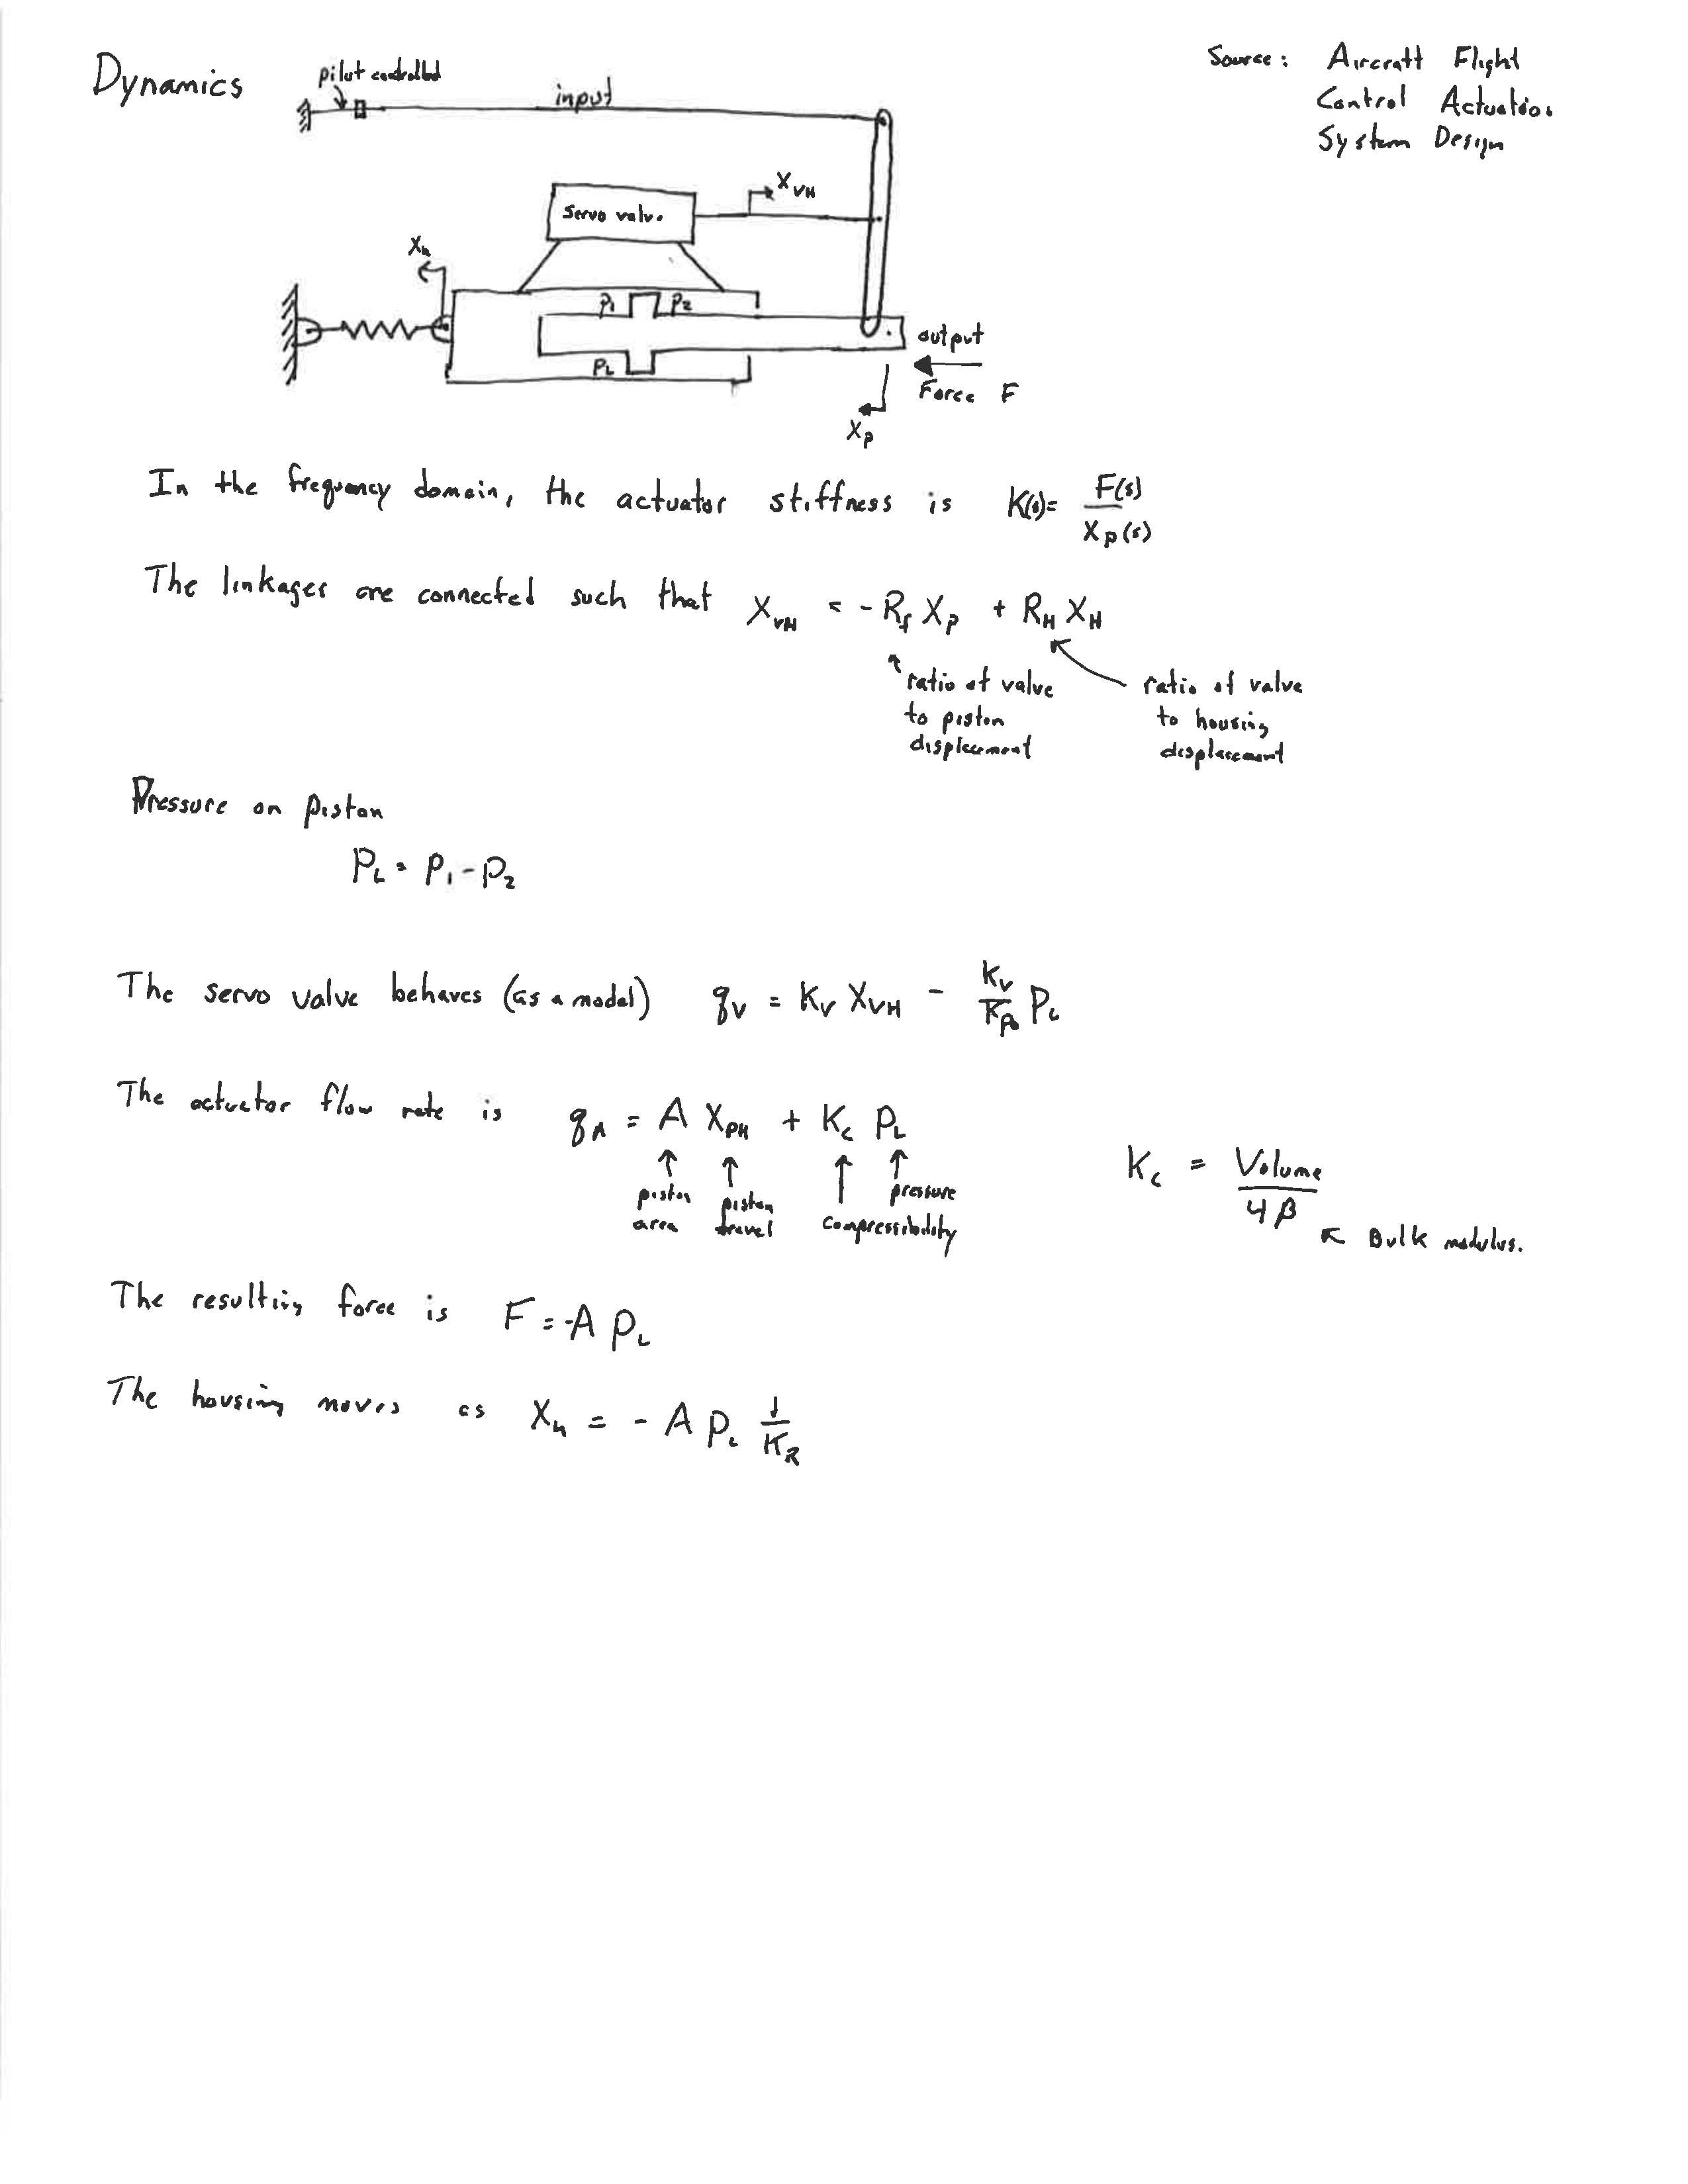 Dynamics
pilot controlled
input
Source: Aircraft Flight
Control Actuation
System Design
Servo valve
X_VH
X_h
P_1 P_2
P_L
output
Force F
X_p
In the frequency domain, the actuator stiffness is K(s)= F(s)/X_p(s)
The linkages are connected such that X_VH = -R_f X_p + R_H X_H
ratio of valve
to piston
displacement
ratio of valve
to housing
displacement
Pressure on piston
P_L = P_1 - P_2
The servo valve behaves (as a model) q_V = K_V X_VH - K_V/K_P P_L
The actuator flow rate is q_A = A X_PH + K_c P_L
piston
area
piston
travel
compressibility
pressure
K_c = Volume/4β
Bulk modulus.
The resulting force is F = -A P_L
The housing moves as X_h = - A P_L 1/K_R